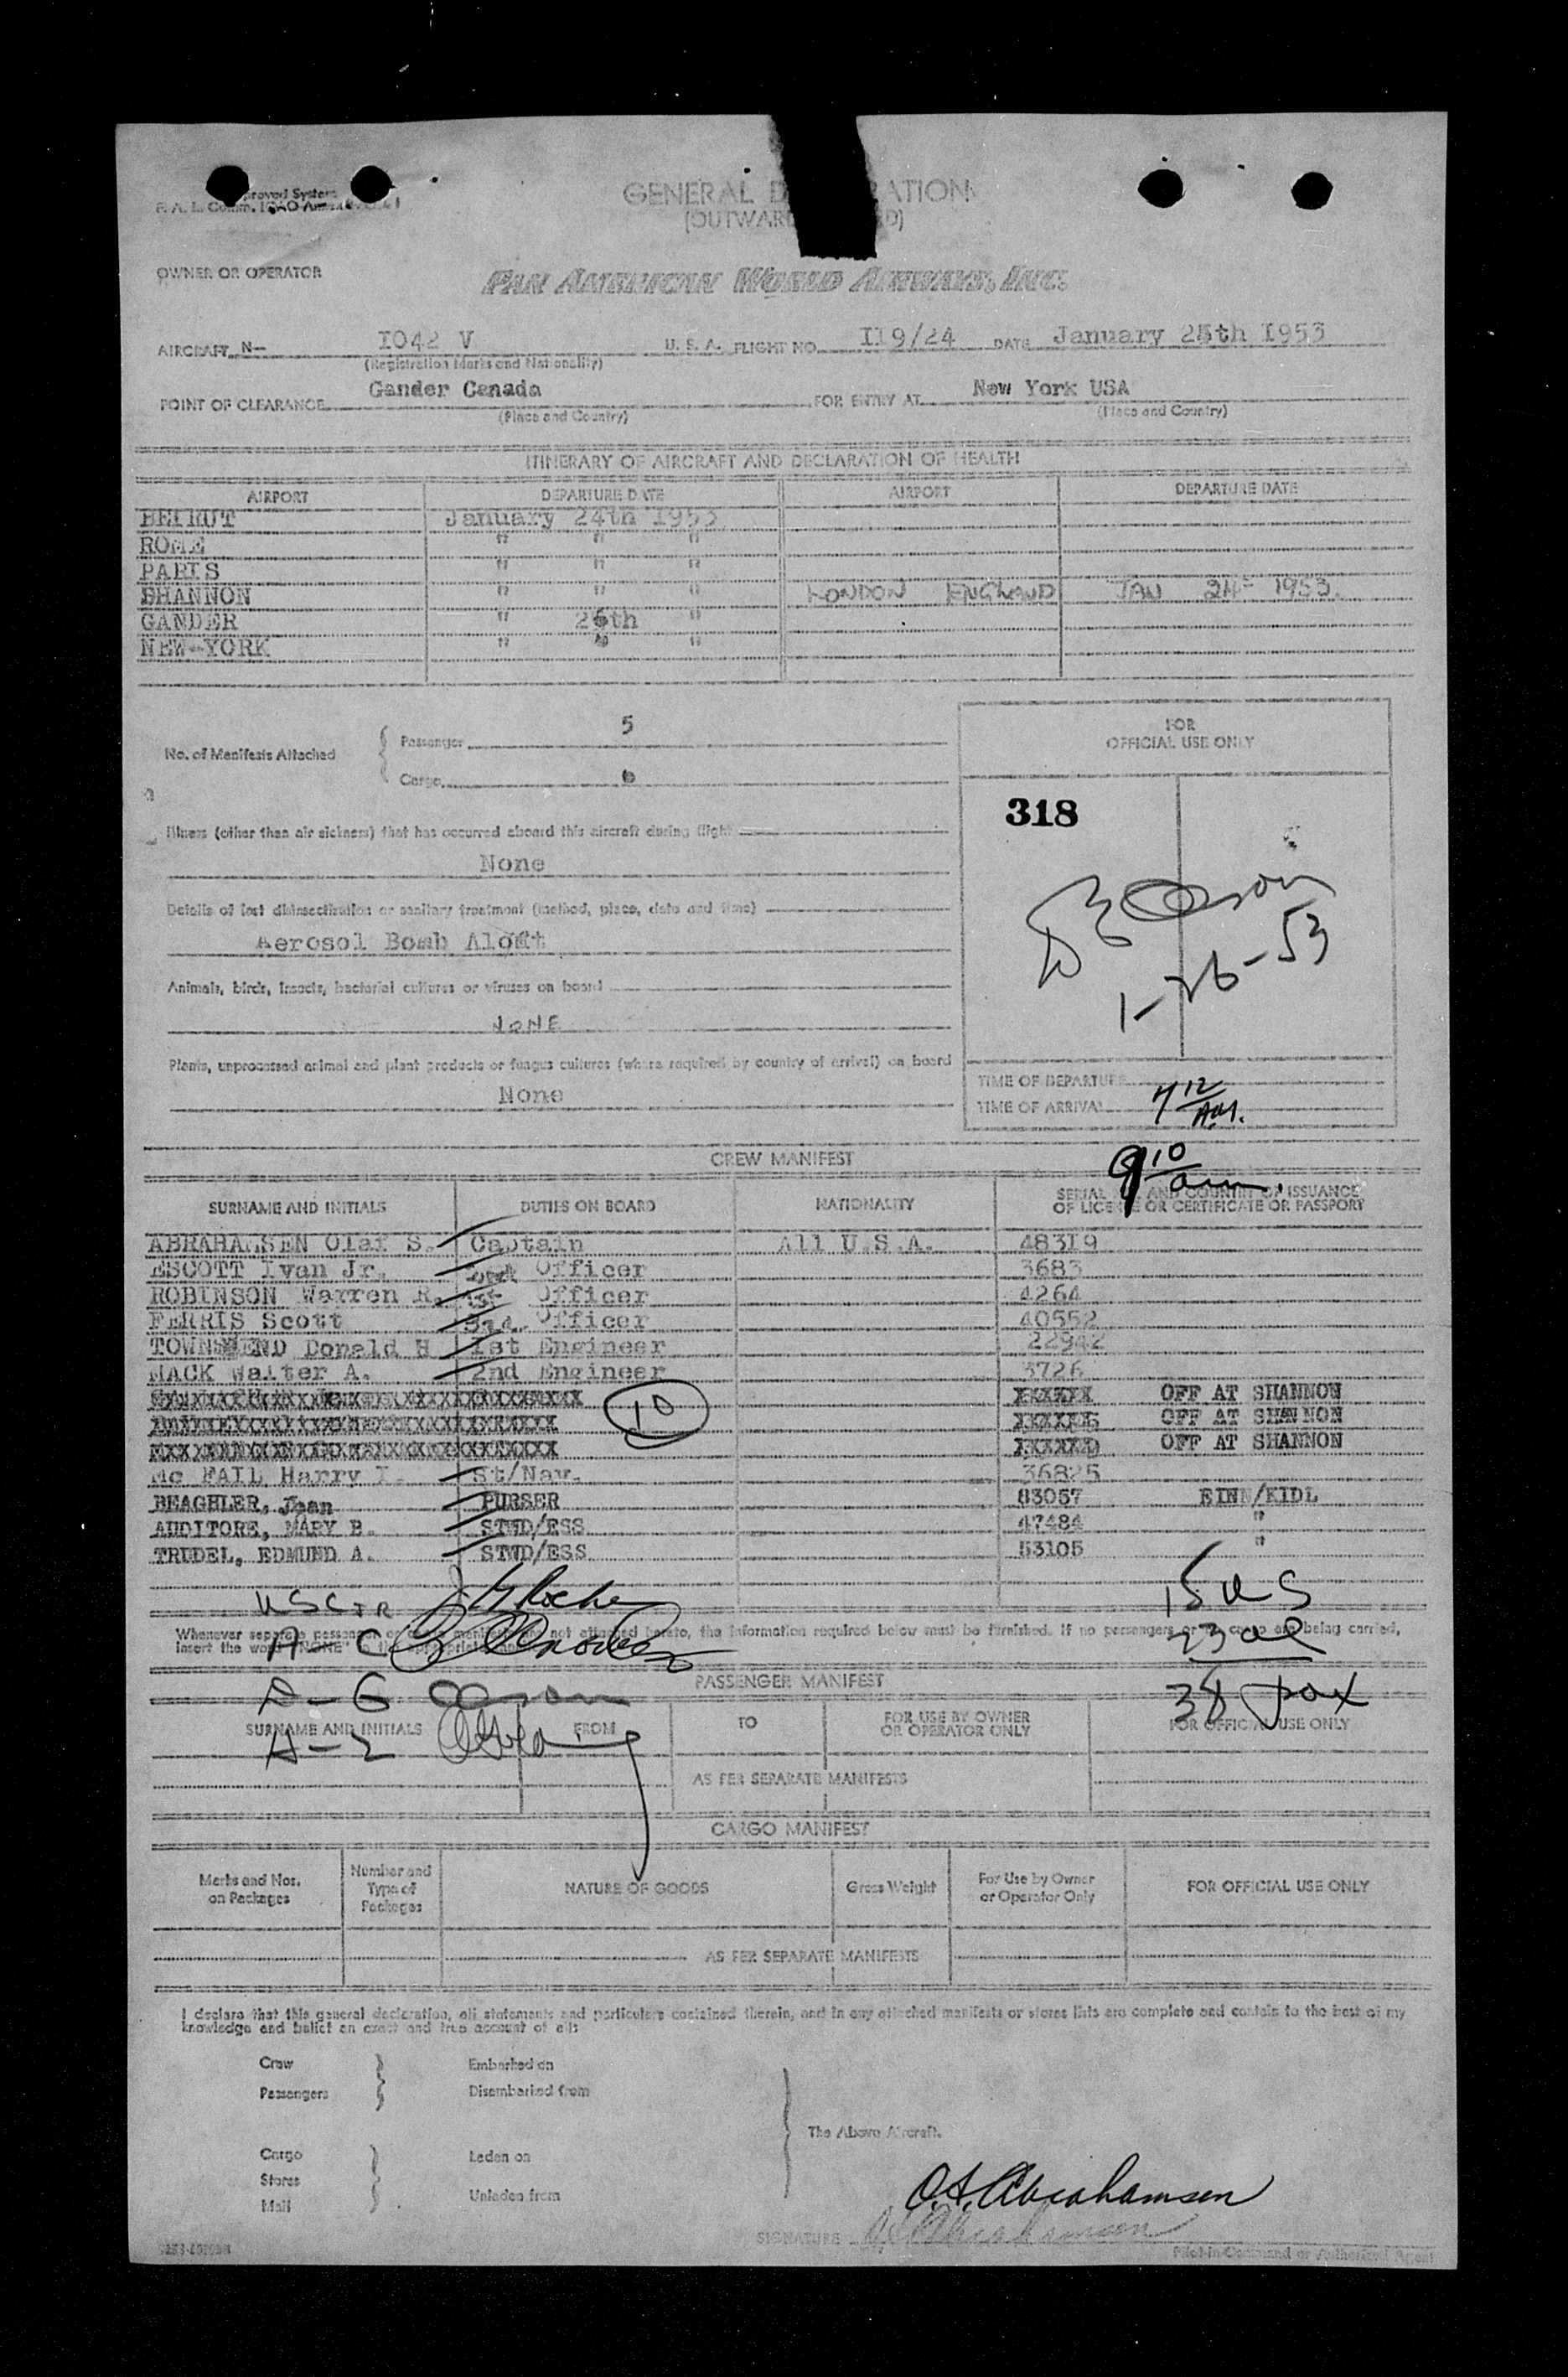 proved System
GENERAL D RATION
(OUTWARD D)
OWNER OR OPERATOR
PAN AMERICAN WORLD AIRWAYS, INC.
AIRCRAFT N- I042 V U. S. A. FLIGHT NO. II9/24 DATE January 25th I953
(Registration Marks and Nationality)
POINT OF CLEARANCE Gander Canada FOR ENTRY AT New York USA
(Place and Country) (Place and Country)
ITINERARY OF AIRCRAFT AND DECLARATION OF HEALTH
AIRPORT DEPARTURE DATE AIRPORT DEPARTURE DATE
BEIRUT January 24th I953
ROME " " "
PARIS " " "
SHANNON " " " LONDON ENGLAND JAN 24 1953.
GANDER " 26th "
NEW-YORK " " "
No. of Manifests Attached
Passenger 5
Cargo 6
FOR
OFFICIAL USE ONLY
318
1-26-53
Illness (other than air sickness) that has occurred aboard this aircraft during flight
None
Details of last disinsectization or sanitary treatment (method, place, date and time)
Aerosol Bomb Aloft
Animals, birds, insects, bacterial cultures or viruses on board
NONE
Plants, unprocessed animal and plant products or fungus cultures (where required by country of arrival) on board
None
TIME OF DEPARTURE
TIME OF ARRIVAL 7 12 AM.
9 10 am.
CREW MANIFEST
SURNAME AND INITIALS DUTIES ON BOARD NATIONALITY SERIAL NO. AND COUNTRY OF ISSUANCE
OF LICENSE OR CERTIFICATE OR PASSPORT
ABRAHAMSEN Olaf S. Captain All U.S.A. 48319
ESCOTT Ivan Jr. Officer 3683
ROBINSON Warren R. 1st Officer 4264
FERRIS Scott Officer 40552
TOWNSEND Donald H 1st Engineer 22942
MACK Walter A. 2nd Engineer 3726
OFF AT SHANNON
10
OFF AT SHANNON
OFF AT SHANNON
Mc FAIL Harry I. St/Nav. 36825
BEAGHLER, Jean PURSER 83057 EINN/KIDL
AUDITORE, MARY B. STWD/ESS 47484 "
TRUDEL, EDMUND A. STWD/ESS 53105 "
15 US
Whenever separate passenger or cargo manifests are not attached hereto, the information required below must be furnished. If no passengers or no cargo are being carried,
insert the word "NONE" in the appropriate
23 al
38 pax
PASSENGER MANIFEST
SURNAME AND INITIALS FROM TO FOR USE BY OWNER
OR OPERATOR ONLY FOR OFFICIAL USE ONLY
AS PER SEPARATE MANIFESTS
CARGO MANIFEST
Marks and Nos.
on Packages
Number and
Type of
Packages
NATURE OF GOODS
Gross Weight
For Use by Owner
or Operator Only
FOR OFFICIAL USE ONLY
AS PER SEPARATE MANIFESTS
I declare that this general declaration, all statements and particulars contained therein, and in any attached manifests or stores lists are complete and contain to the best of my
knowledge and belief an exact and true account of all:
Crew Embarked on
Passengers Disembarked from
The Above Aircraft.
Cargo Laden on
Stores
Mail Unladen from
O.S. Abrahamsen
SIGNATURE O.S. Abrahamsen
Pilot-in-Command or Authorized Agent